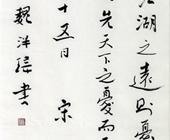 江湖之遠则憂
先天下之憂而
十五日 宋
魏洋 書